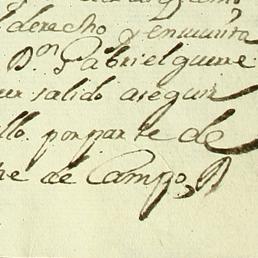 derecho y en nuestra
Dn Gabriel guerre
salido a seguir
llo por parte de
re de Campo, D